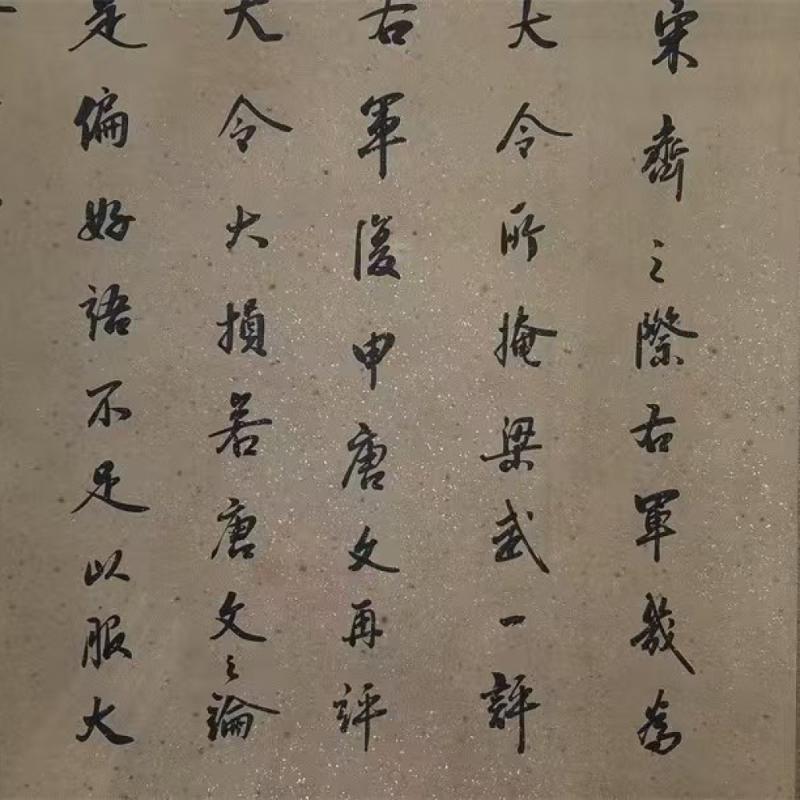 宋齊之際右軍幾為
大令所掩梁武一評
右軍復申唐文再評
大令大損若唐文之論
是偏好語不足以服大